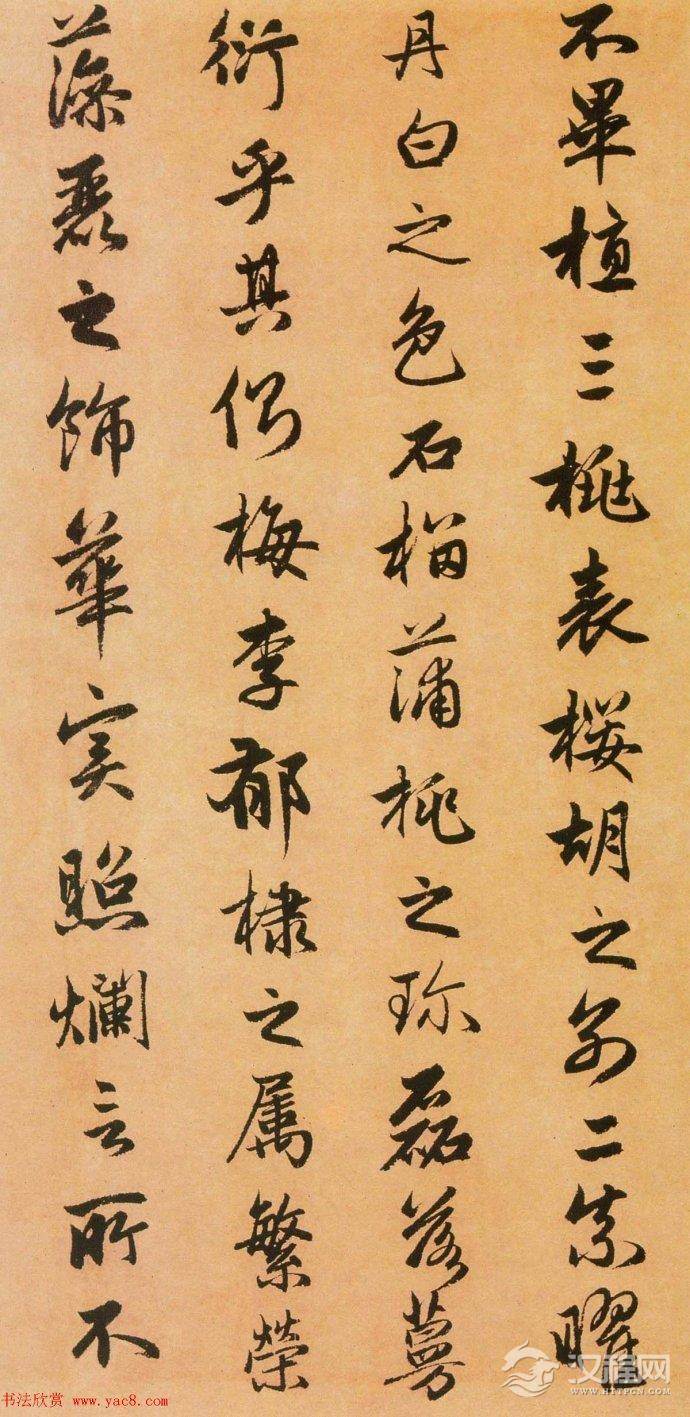 不畢植三桃表櫻胡之別二柰曜
丹白之色石榴蒲桃之珍磊落蔓
衍乎其側梅李郁棣之属繁榮
藻麗之飾華實照爛言所不
书法欣赏 www.yac8.com
汉程网
HTTPCN.COM